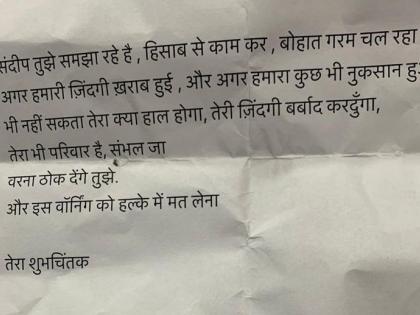 संदीप तुझे समझा रहे है , हिसाब से काम कर , बोहात गरम चल रहा
अगर हमारी ज़िंदगी ख़राब हुई , और अगर हमारा कुछ भी नुकसान
भी नहीं सकता तेरा क्या हाल होगा, तेरी ज़िंदगी बर्बाद करदुँगा,
तेरा भी परिवार है, संभल जा
वरना ठोक देंगे तुझे.
और इस वॉर्निंग को हल्के में मत लेना
तेरा शुभचिंतक